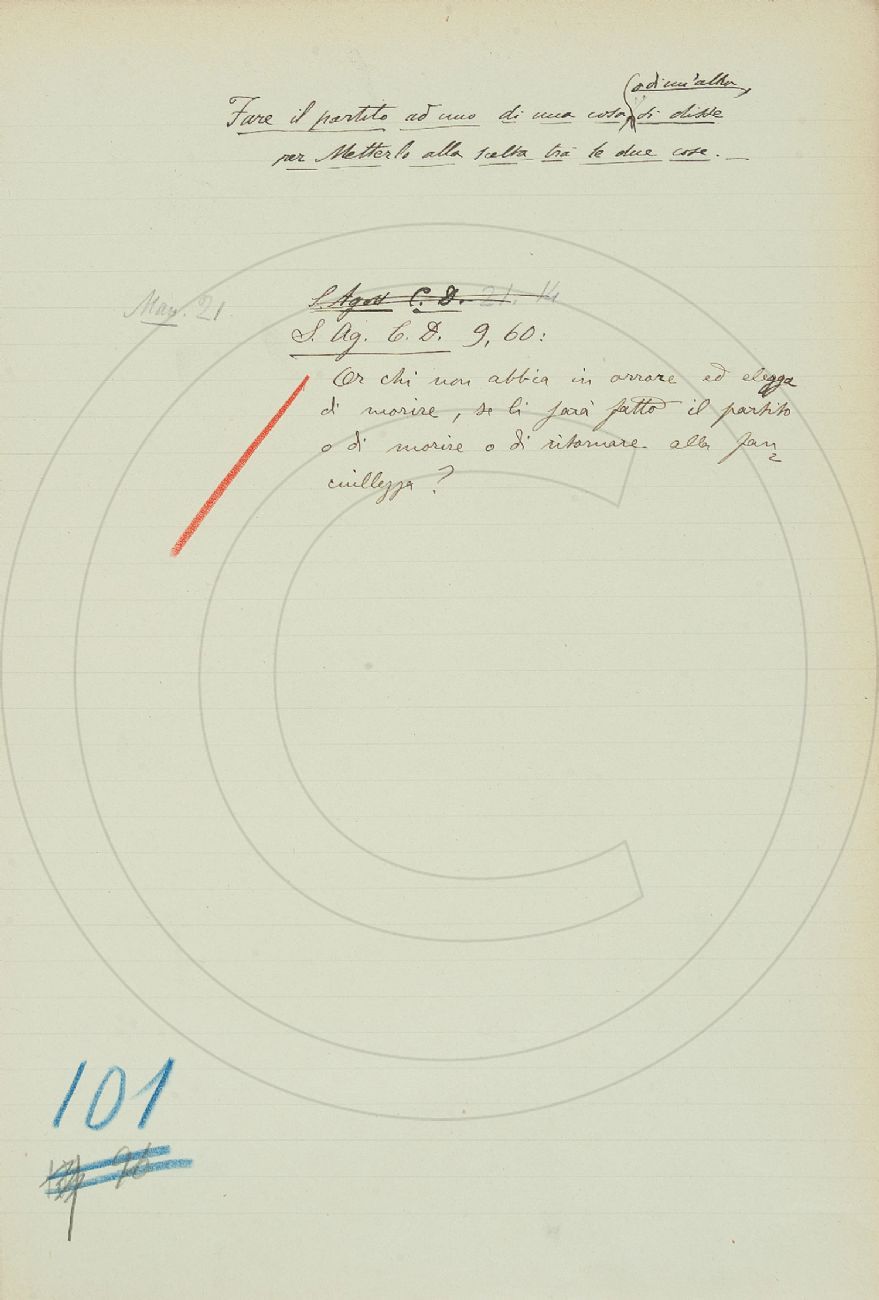 o di un'altra,
Fare il partito ad uno di una cosa di disse
per Metterlo alla scelta tra le due cose. —
S. Agos C. D. 21. 14
Man. 21
S. Ag. C. D. 9, 60:
Or chi non abbia in orrore ed elegga
di morire, se li sarà fatto il partito
o di morire o di ritornare alla fan=
ciullezza?
101
96